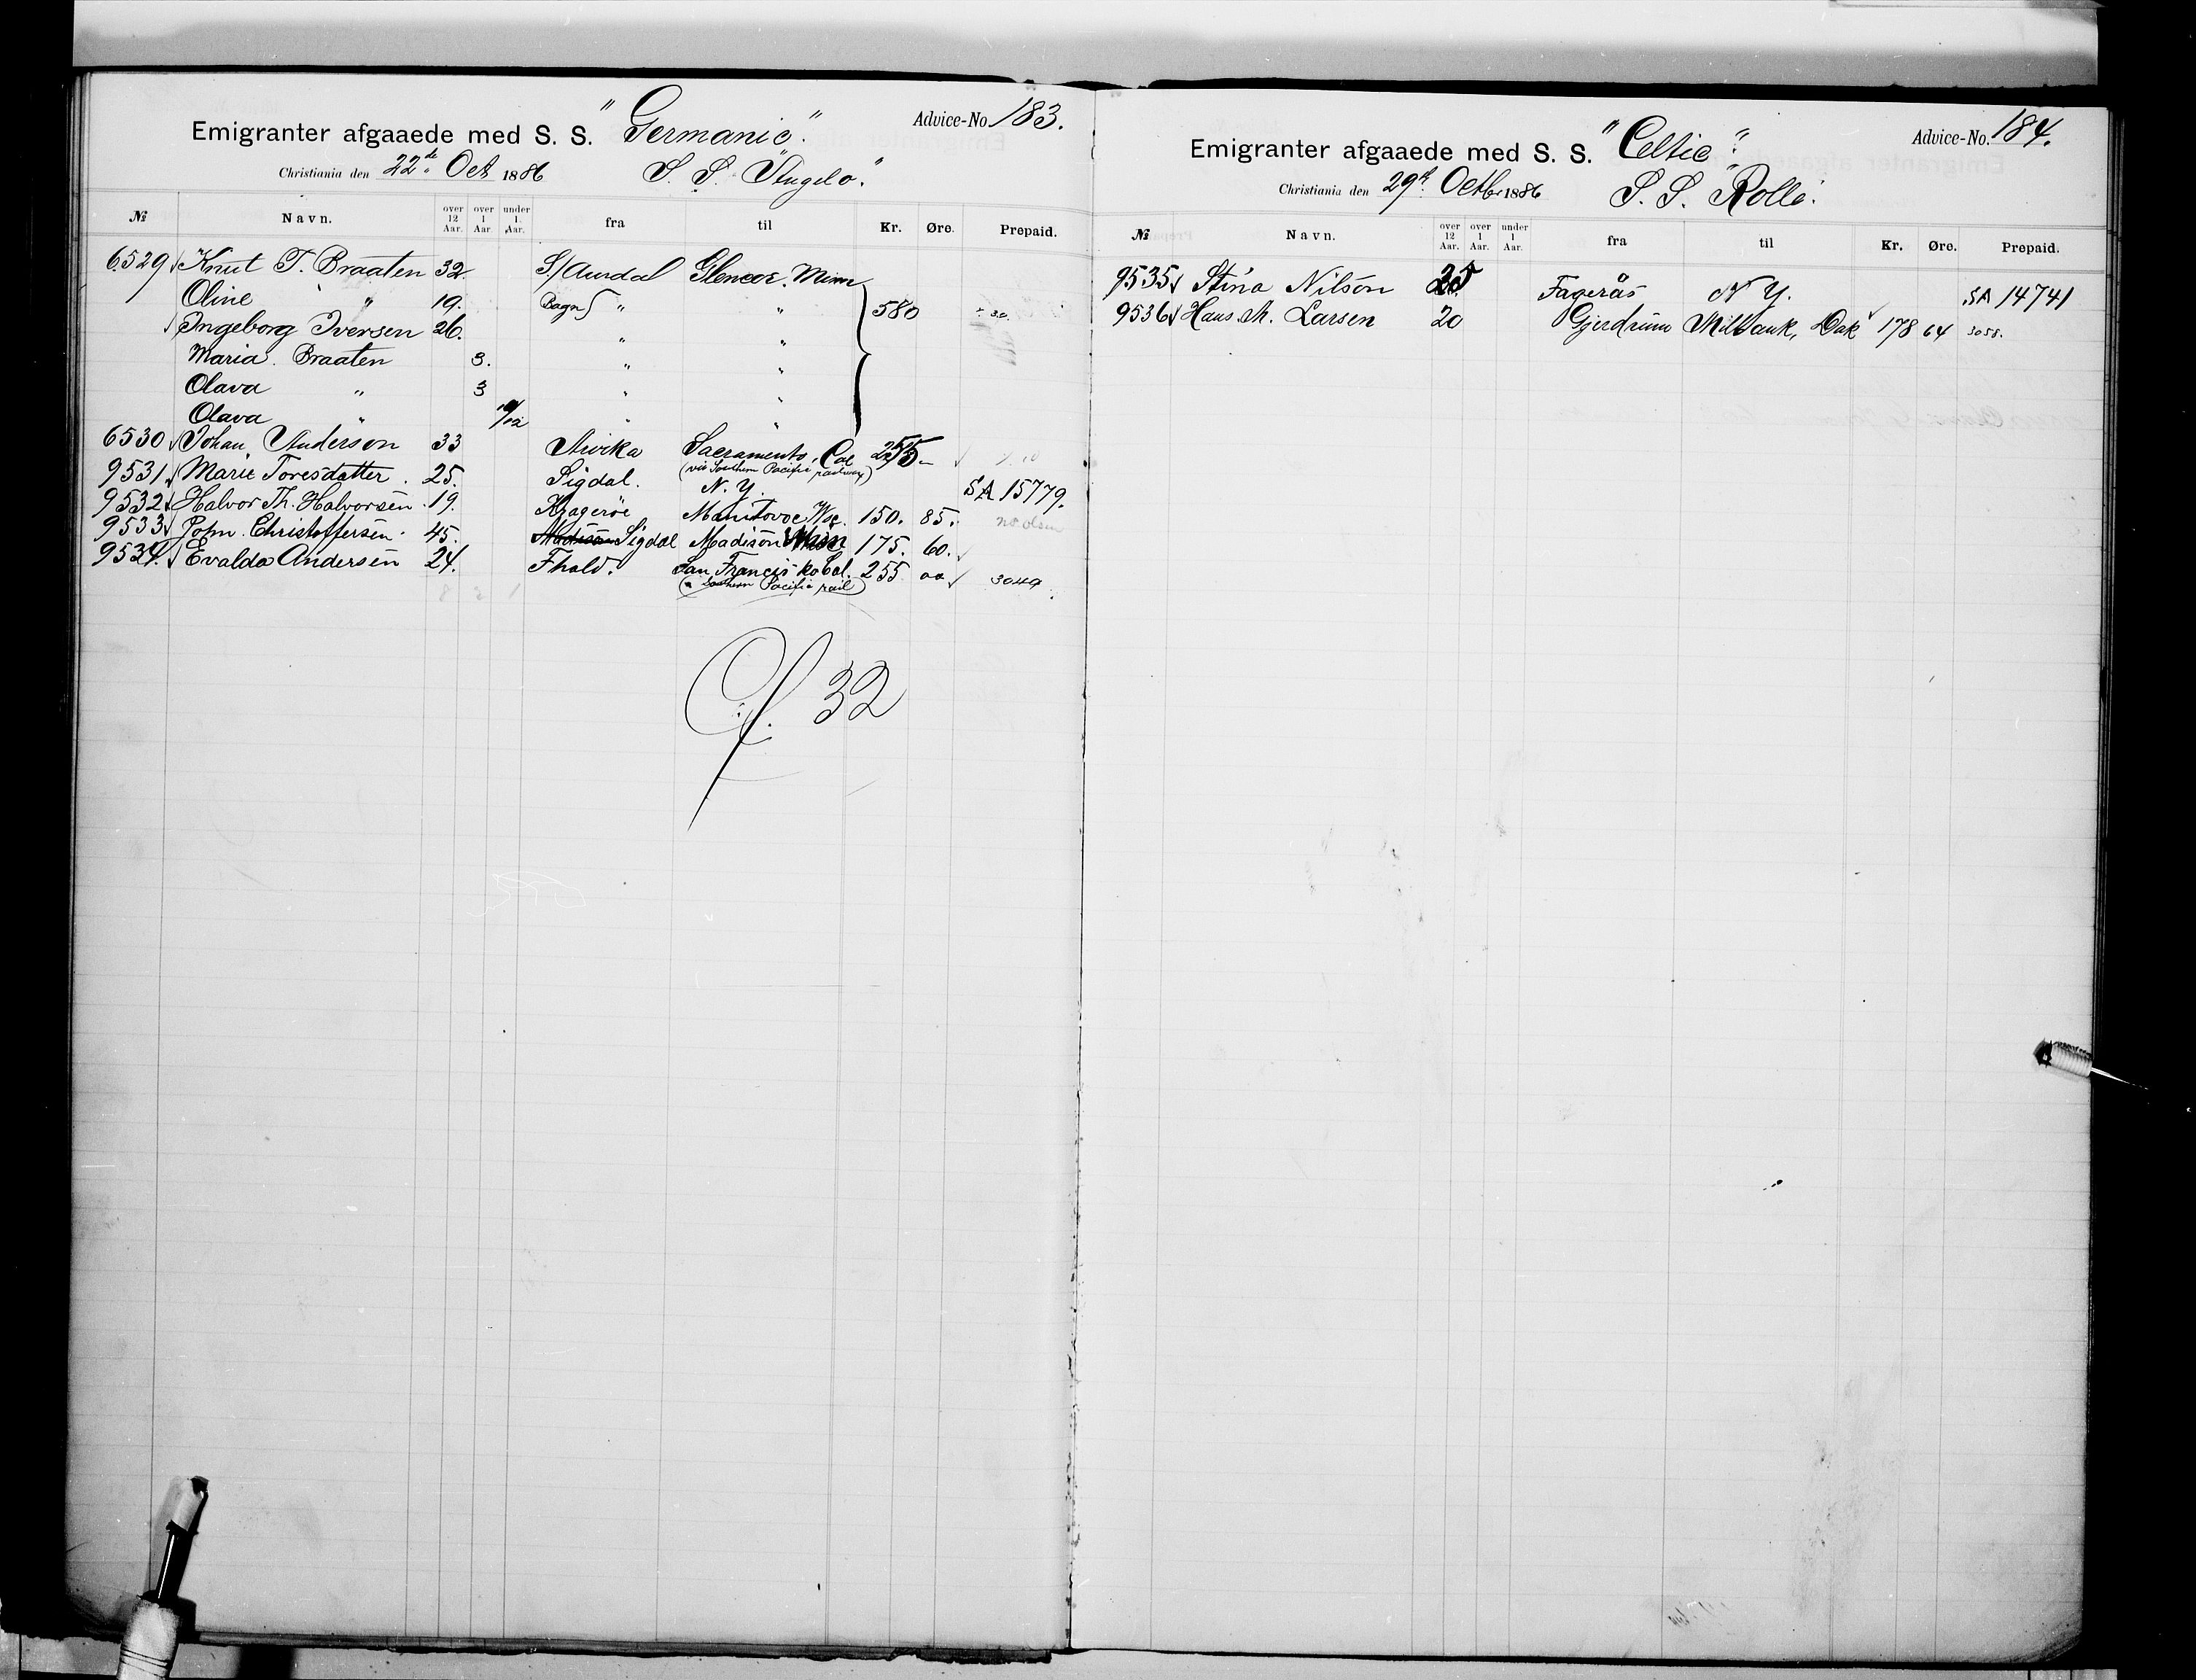 Emigranter afgaaede med S. S. "Germanic". Advice-No 183.
Christiania den 22de Oct 1886 S. S. "Angelo".
№ Navn. over 12 Aar. over 1 Aar under 1 Aar. fra til Kr. Øre. Prepaid.
6529 Knut T. Braaten 32. S/Aurdal Glencoe. Minn
Oline " 19. Bagn " " 580
Ingeborg Iversen 26. " "
Maria Braaten 3. " "
Olava " 3 " "
Olava " 10/12 " "
6530 Johan Anderson 33 Arvika Sacramento, Cal 255 –
(via Southern Pacific railway)
9531 Marie Toresdatter. 25. Sigdal. N. Y. SA 15779.
9532 Halvor Th. Halvorsen 19. Kragerøe Manitovoc Wsc. 150. 85.
9533 John Christoffersen 45. Madison Sigdal Madison Minn 175. 60.
9534. Evalda Andersen 24. Fhald. San Francisko Cal. 255 00 3049
(Southern Pacific rail)
32
Emigranter afgaaede med S. S. "Celtic". Advice-No. 184.
Christiania den 29de Octbr 1886 S. S. Rollo.
№ Navn. over 12 Aar. over 1 Aar. under 1 Aar. fra til Kr. Øre. Prepaid.
9535 Stina Nilson 25 Fagerås N Y. SA 14741
9536 Hans M. Larsen 20 Gjerdrum Milbank, Dak 178 64 3058.